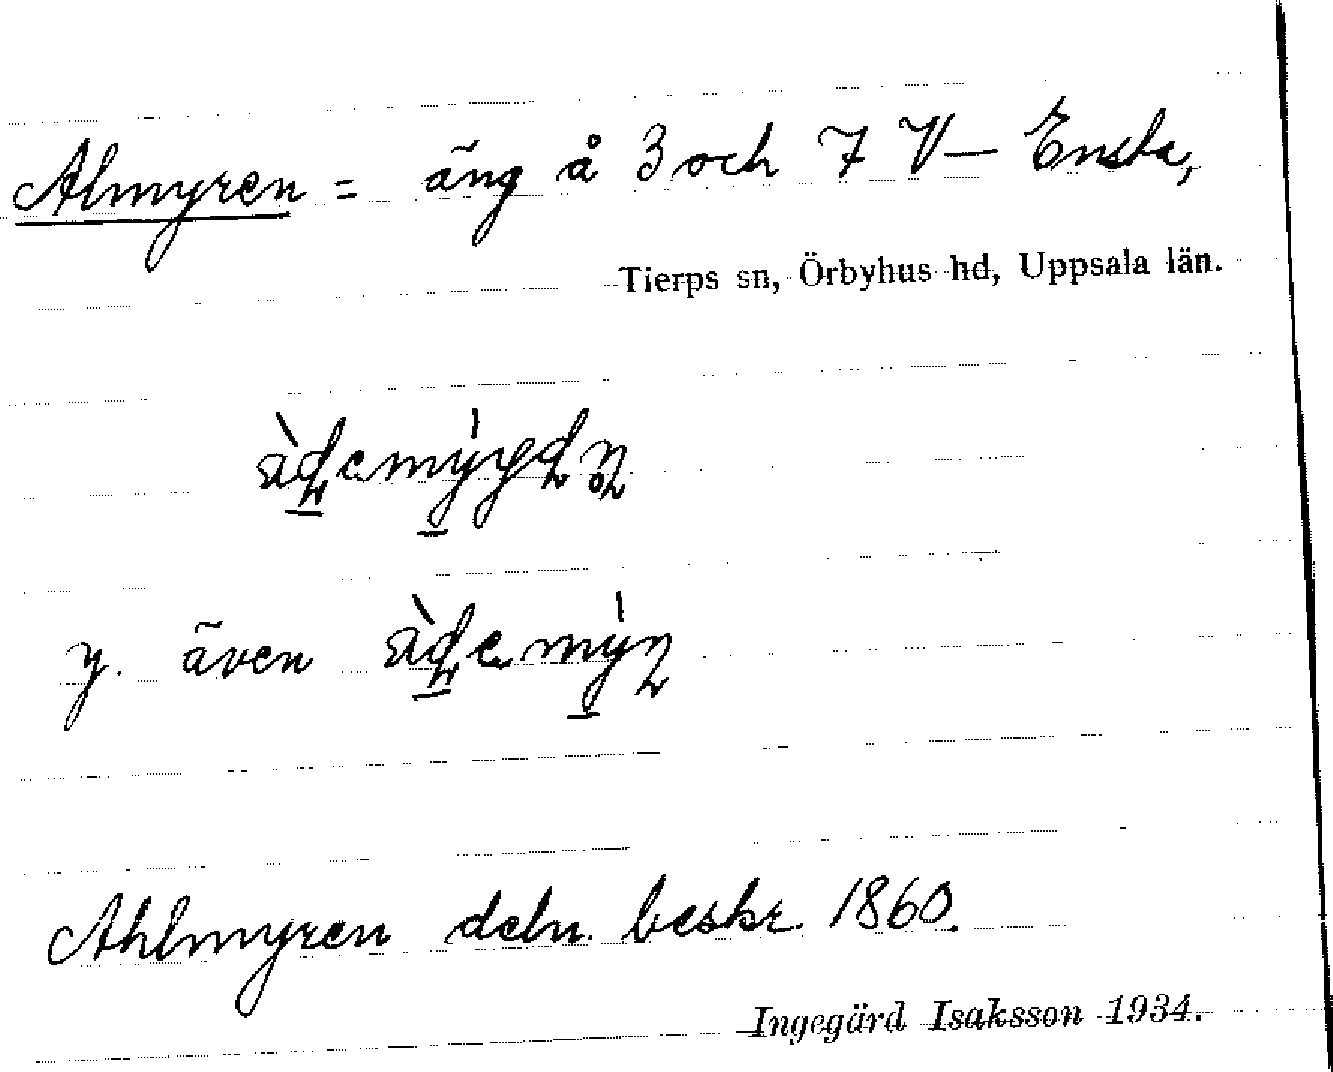 Almyren = äng å 3 och 7 V– Ensta,
Tierps sn, Örbyhus hd, Uppsala län.
y. även
Ahlmyren deln. beskr. 1860.
Ingegärd Isaksson 1934.